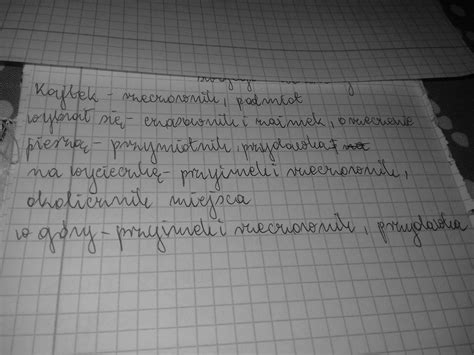 Kajtek - rzeczownik, podmiot
wybrał się - czasownik i zaimek, orzeczenie
pieszą - przymiotnik, przydawka
na wycieczkę - przyimek i rzeczownik,
okolicznik miejsca
w góry - przyimek i rzeczownik, przydawka